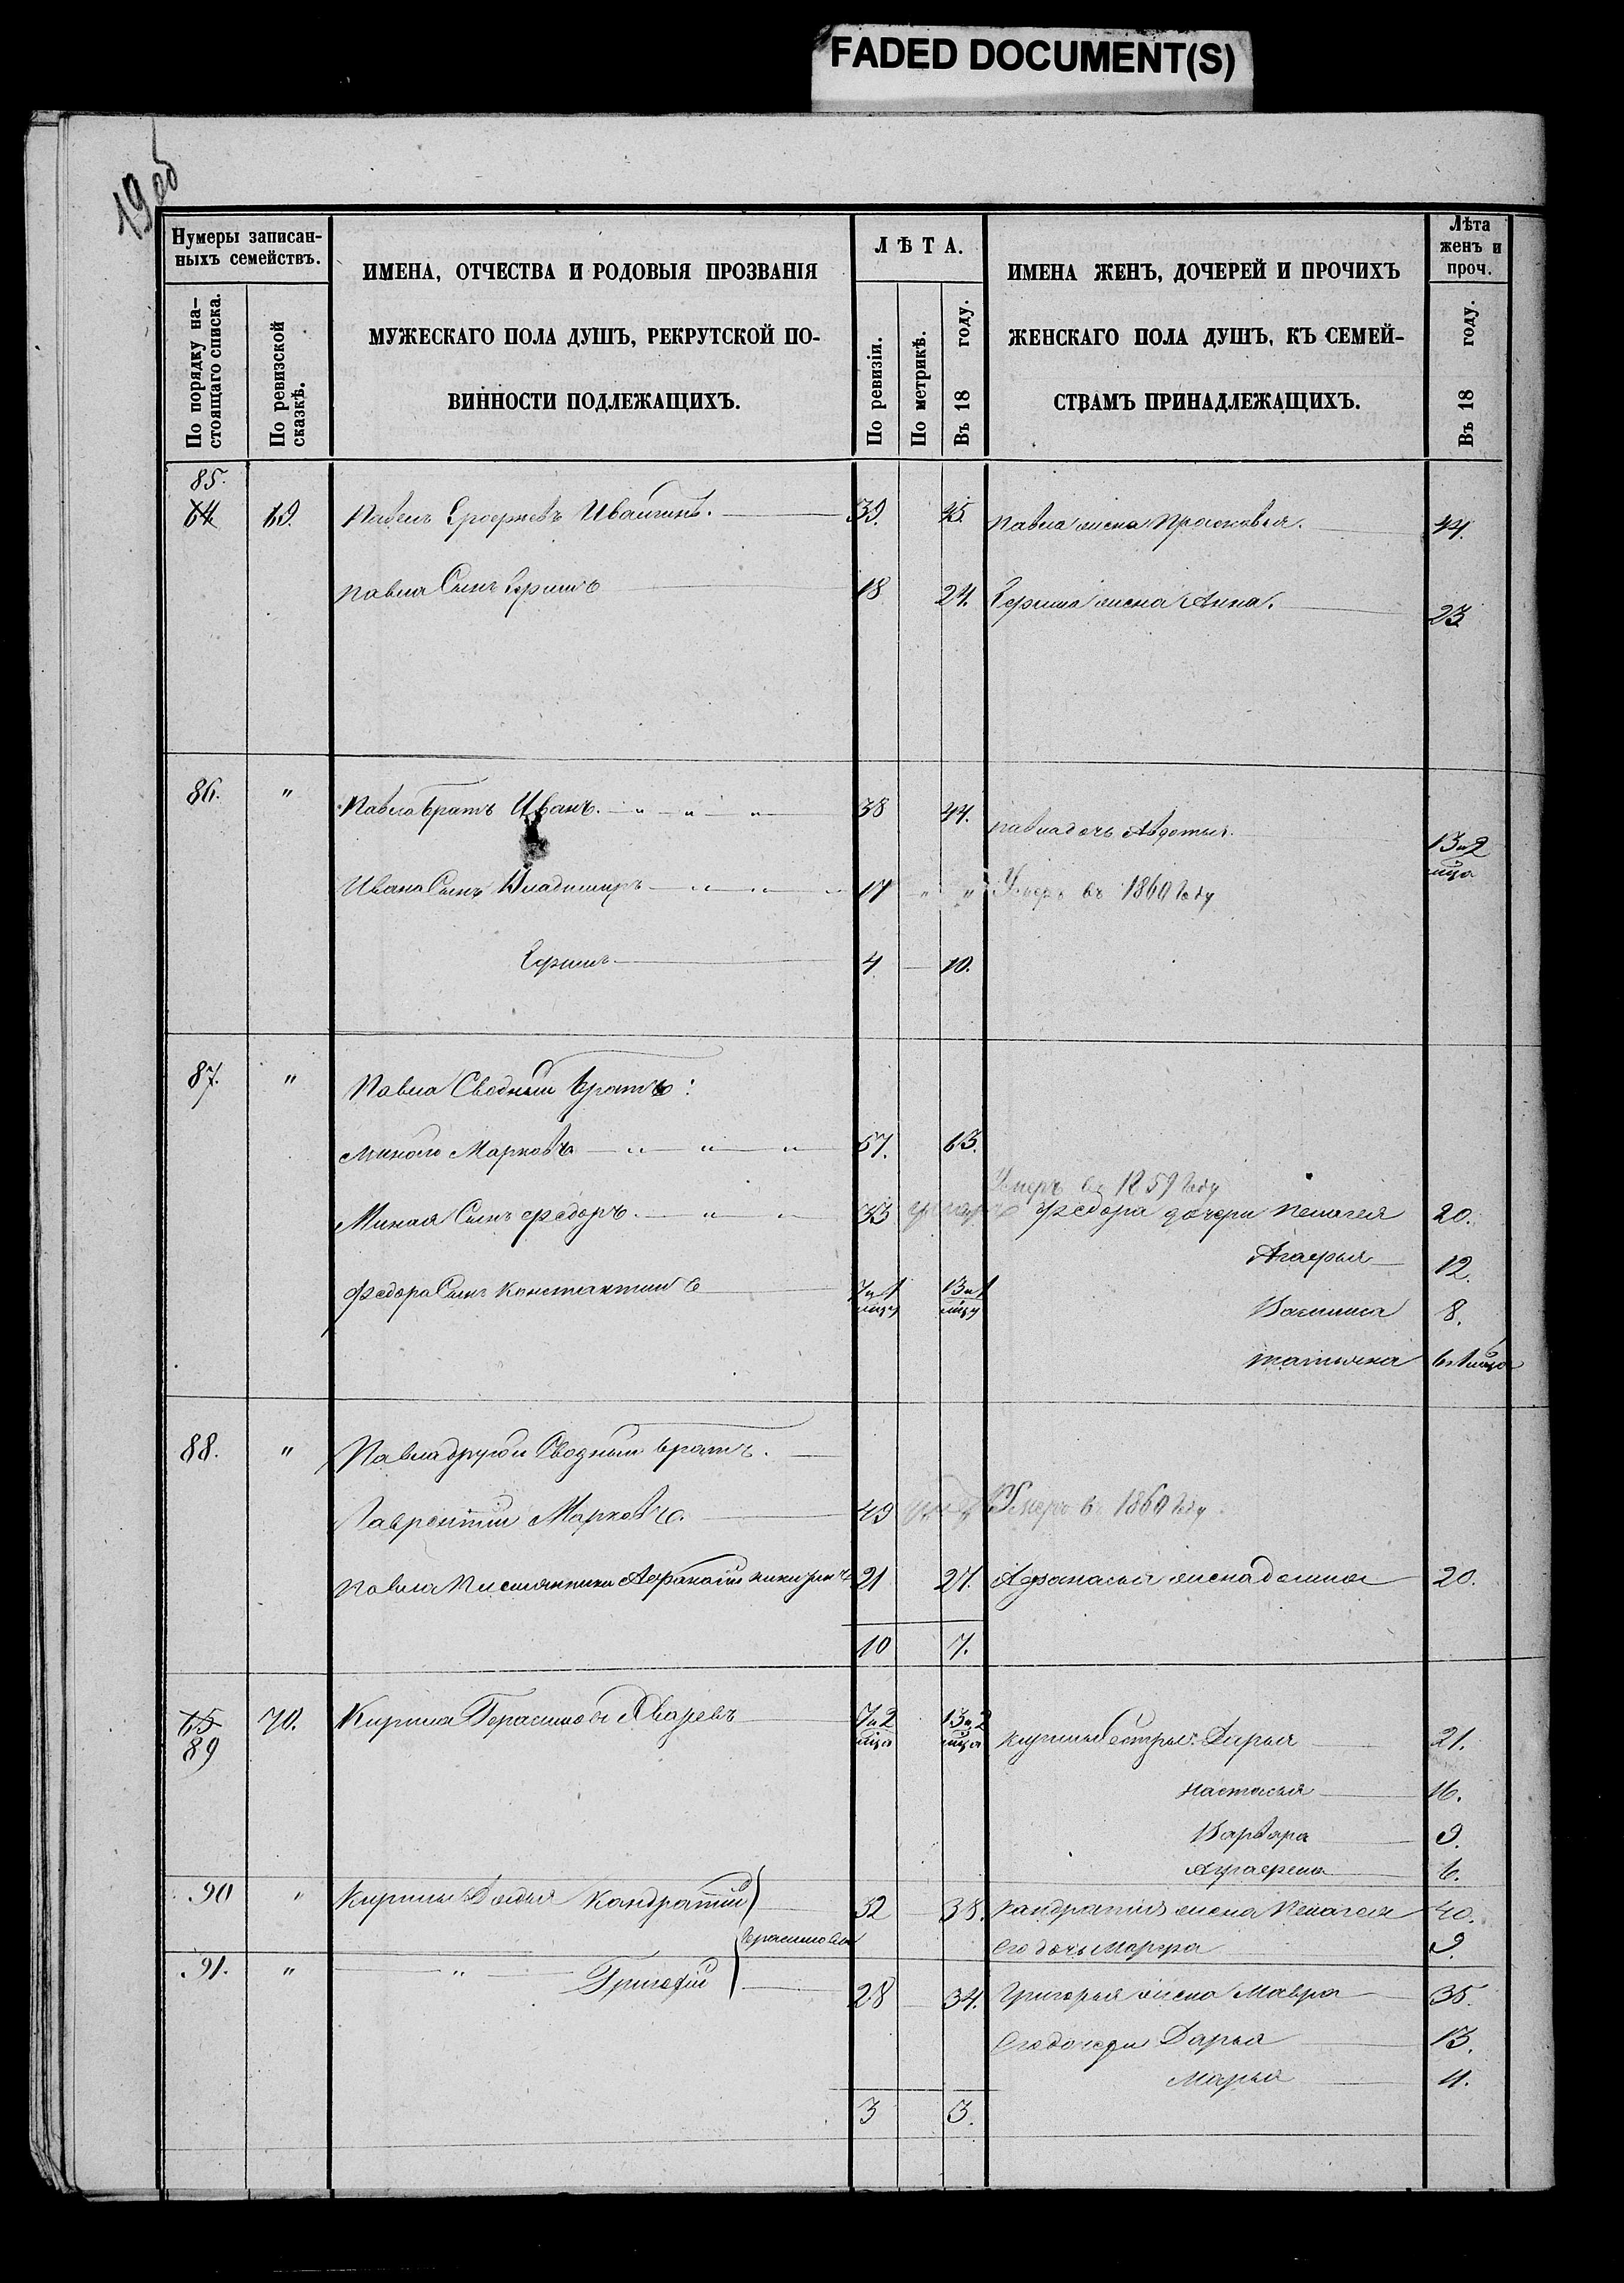 FADED DOCUMENT(S)
19 об
Нумеры записан-
ныхъ семействъ.
По порядку на-
стоящаго списка.
По ревизской
сказкѣ.
ИМЕНА, ОТЧЕСТВА И РОДОВЫЯ ПРОЗВАНІЯ
МУЖЕСКАГО ПОЛА ДУШЪ, РЕКРУТСКОЙ ПО-
ВИННОСТИ ПОДЛЕЖАЩИХЪ.
ЛѢТА.
По ревизіи.
По метрикѣ.
Въ 18 году.
ИМЕНА ЖЕНЪ, ДОЧЕРЕЙ И ПРОЧИХЪ
ЖЕНСКАГО ПОЛА ДУШЪ, КЪ СЕМЕЙ-
СТВАМЪ ПРИНАДЛЕЖАЩИХЪ.
Лѣта
женъ и
проч.
Въ 18 году.
85.
64 69. Павелъ Ерофеевъ 39. 45. Павла жена Прасковья. 44.
Павла Сынъ Ефимъ 18 24. Ефима жена Анна. 23
86. " Павла братъ Иванъ. 38 44. Павла дочь Авдотья. 13 и 2 мца
Ивана Сынъ Владимиръ 17 " " Умеръ въ 1860 году
Ефимъ 4 10.
87. " Павла Сводный братъ:
Марковъ 57. 63.
Умеръ въ 1859 году
Миная Сынъ Федоръ. 33 умеръ Федора дочери Пелагея 20.
Агафья 12.
Федора Сынъ Константинъ 7 и 1 мцу 13 и 1 мцу
Василиса 8.
Татьяна 6 и 1 мца
88. " Павла другой Сводный братъ.
Лаврентій Марковъ. 49 Умеръ въ 1860 году.
Павла племянникъ Афанасій 21 27. Афанасья жена 20.
10 7.
65 70. Кирила Герасимовъ 7 и 2 мца 13 и 2 мца Кирилы Сестры: Дарья 21.
89
Настасья 16.
Варвара 9.
Аграфена 6.
90 " Кирилы Дядья Кондратій 32 38. Кандратія жена Пелагея 40.
Его дочь Марфа 9.
91. " " Григорій 28 34. Григорья жена Мавра 35.
Его дочери Дарья 13.
Марья 4.
3 3.